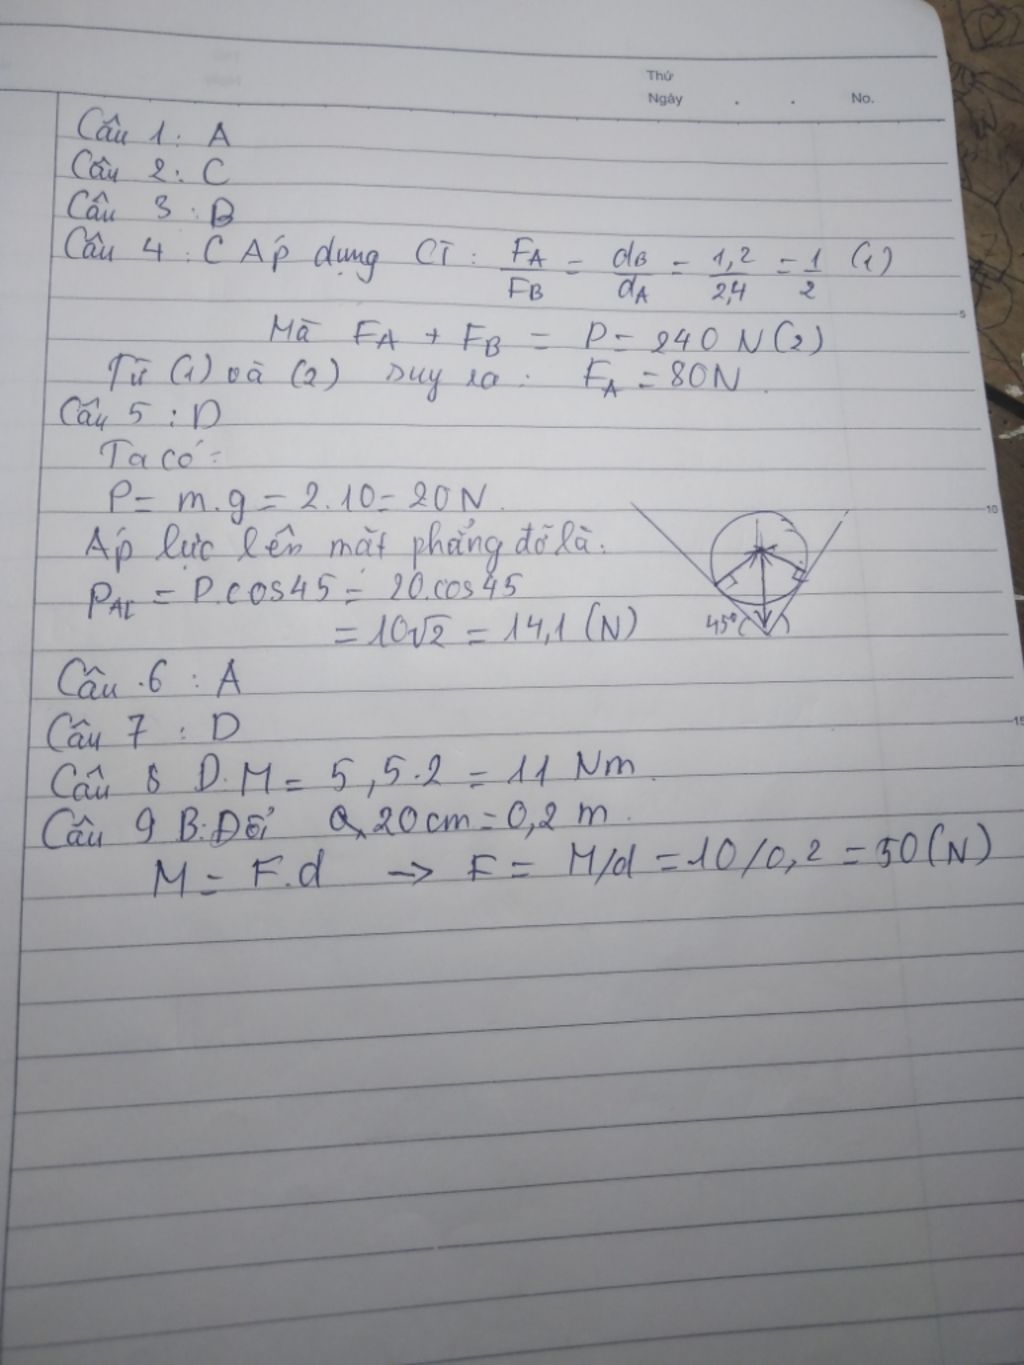 Thứ
Ngày . . No.
Câu 1: A
Câu 2: C
Câu 3: B
Câu 4: C Áp dụng CT: FA/FB = dB/dA = 1,2/2,4 = 1/2 (1)
5
Mà FA + FB = P = 240 N (2)
Từ (1) và (2) suy ra: FA = 80N.
Câu 5: D
Ta có:
P = m.g = 2.10 = 20N.
10
Áp lực lên mặt phẳng đỡ là:
P.cos45 = 20.cos45
= 10√2 = 14,1 (N)
45°
Câu .6 : A
Câu 7 : D
15
Câu 8 D. M = 5,5.2 = 11 Nm.
Câu 9 B: Đổi 20cm = 0,2 m.
M = F.d → F = M/d = 10/0,2 = 50 (N)